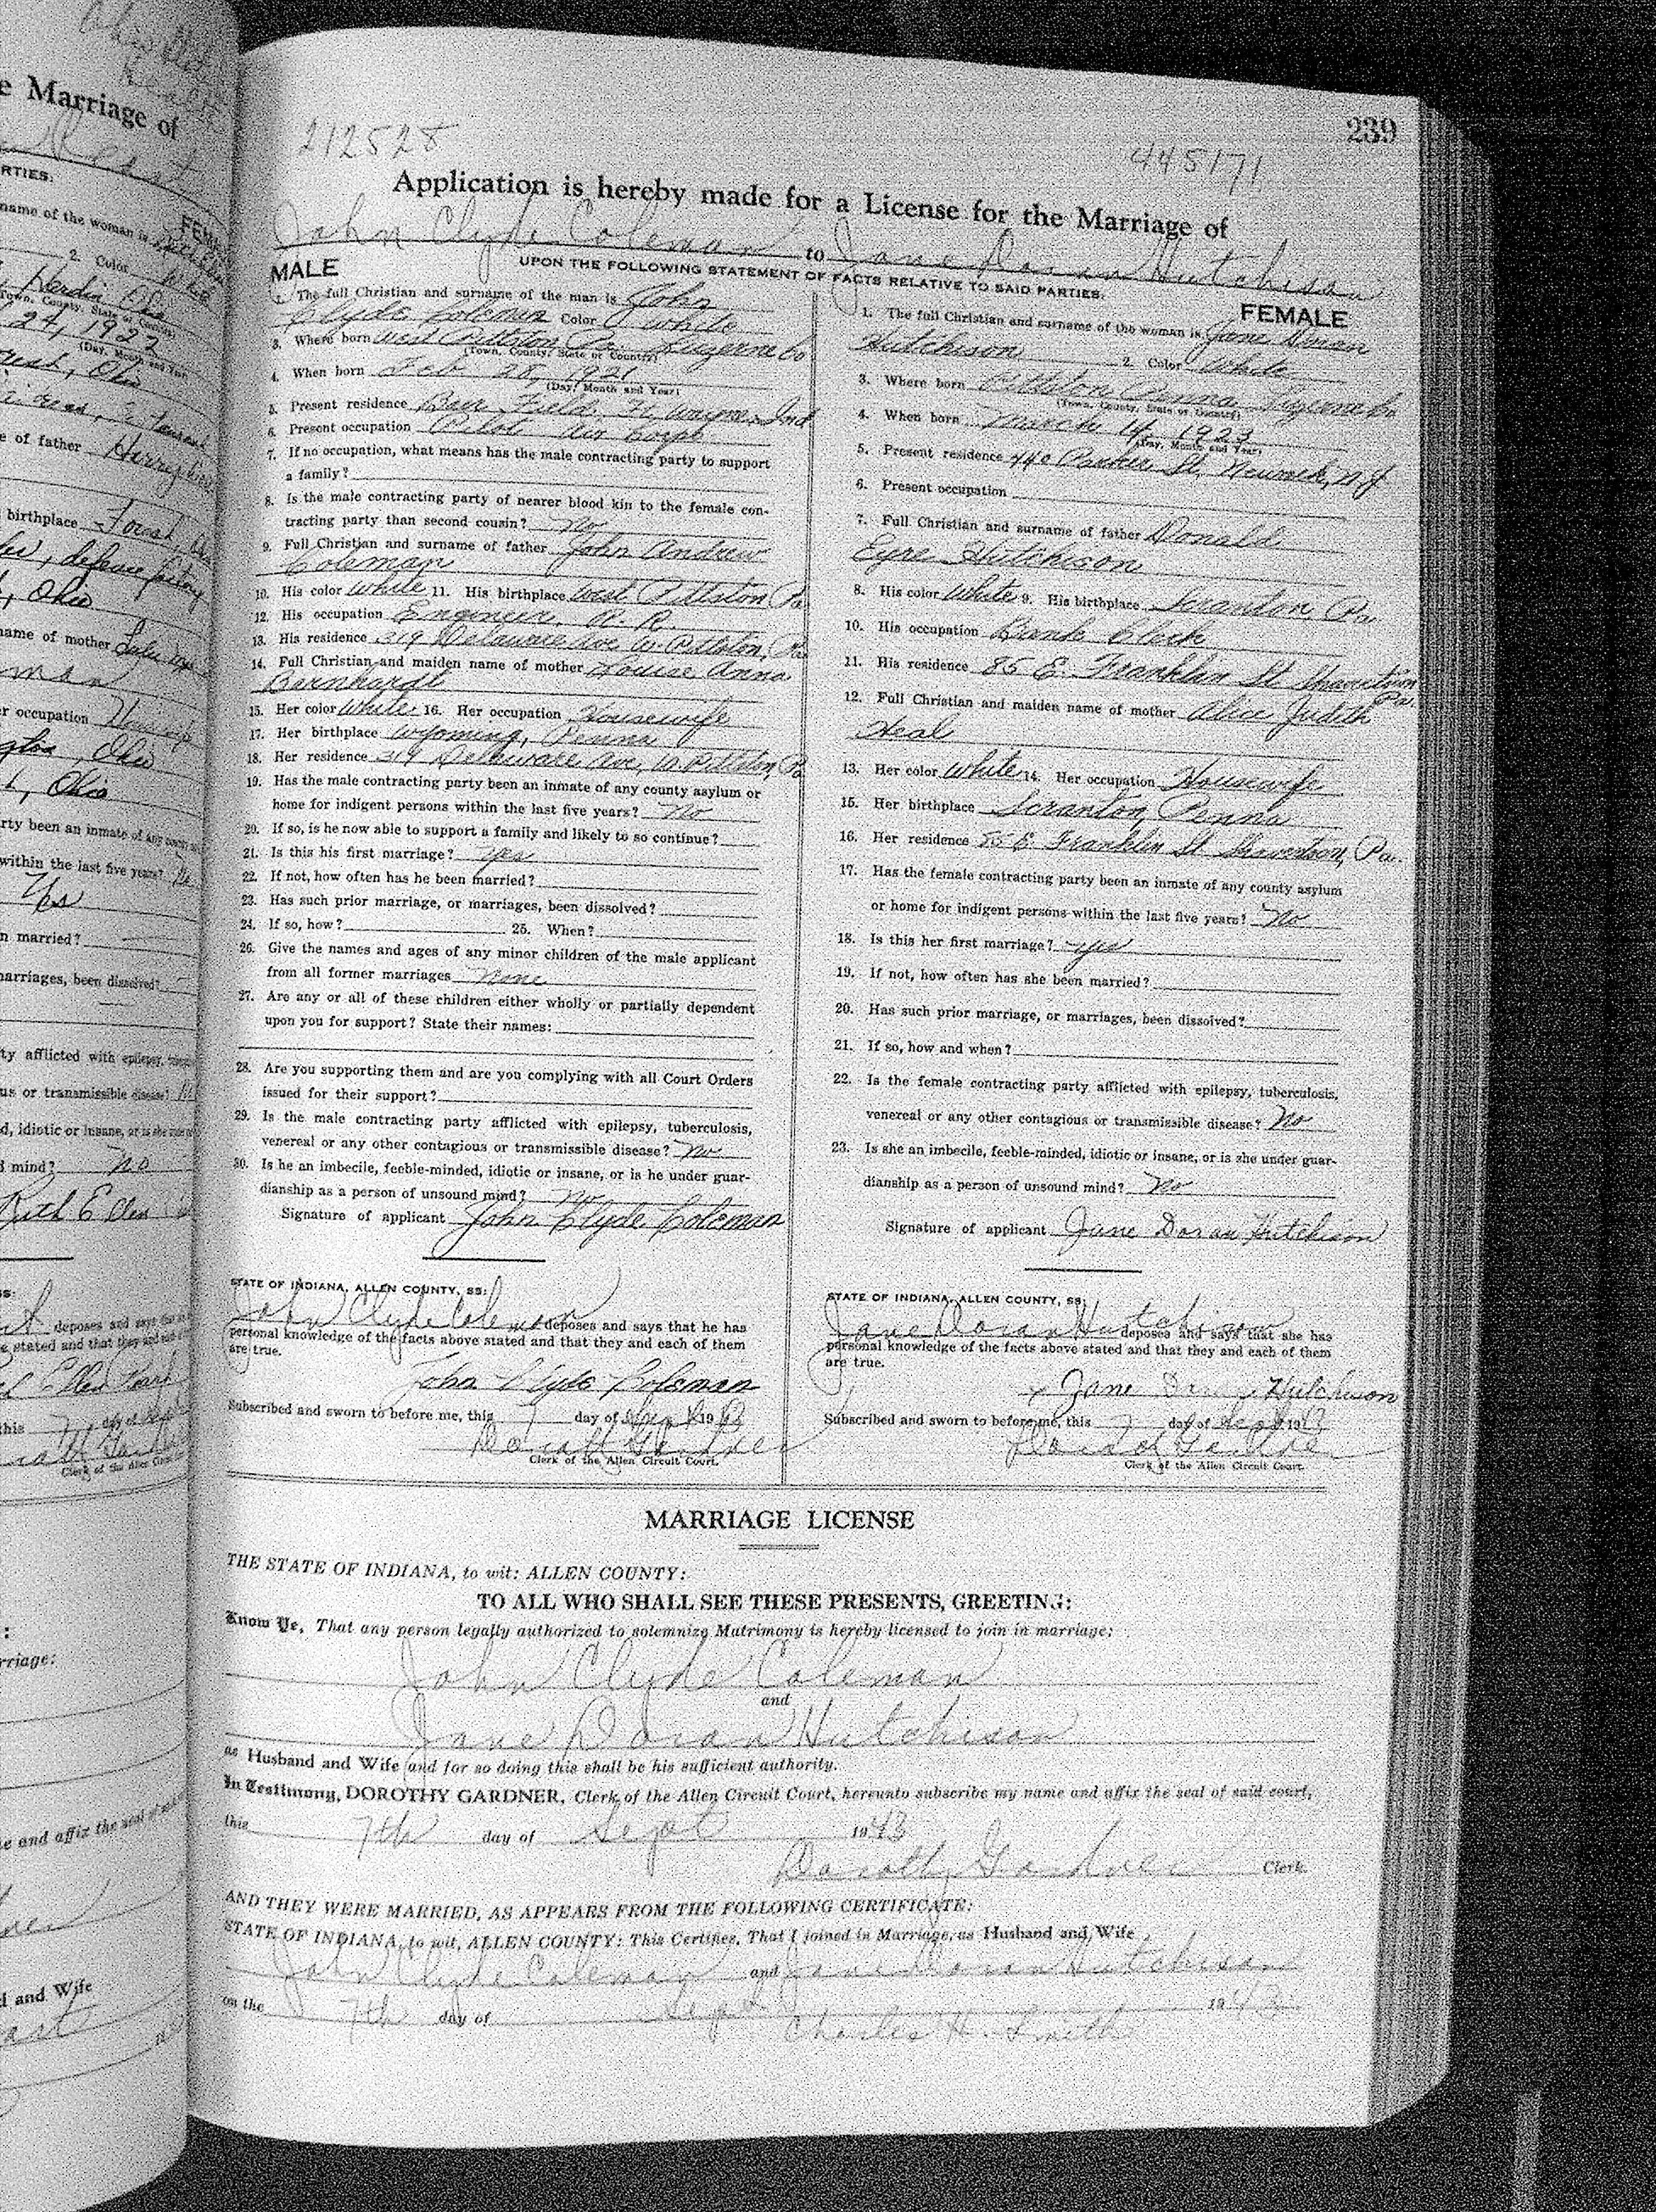 e Marriage of
RTIES.
name of the woman is
FEMA
2. Color White
Hardin, Ohio
Town, County, State or Country)
24, 1922
(Day, Month and Year)
Ohio
e of father Harry
birthplace Forest,
defense factory
Ohio
name of mother
er occupation Housewife
Ohio
Ohio
rty been an inmate of any county
within the last five years? No
Yes
n married?
marriages, been dissolved?
ty afflicted with epilepsy,
us or transmissible disease?
d, idiotic or insane, or is she
d mind? No
Ruth Ellen
deposes and says that
e stated and that they and each
this 7 day of
Clerk of the Allen Circuit
:
rriage:
ne and affix the seal of said
d and Wife
239
212528
445171
Application is hereby made for a License for the Marriage of
John Clyde Coleman to Jane Doran Hutchison
UPON THE FOLLOWING STATEMENT OF FACTS RELATIVE TO SAID PARTIES.
MALE
1. The full Christian and surname of the man is John
Clyde Coleman Color White
3. Where born West Pittston Pa. Luzerne Co
(Town, County, State or Country)
4. When born Feb 28, 1921
(Day, Month and Year)
5. Present residence Baer Field Ft. Wayne, Ind
6. Present occupation Pilot Air Corps
7. If no occupation, what means has the male contracting party to support
a family?
8. Is the male contracting party of nearer blood kin to the female con-
tracting party than second cousin? No
9. Full Christian and surname of father John Andrew
Coleman
10. His color White 11. His birthplace West Pittston Pa
12. His occupation Engineer, R. R.
13. His residence 319 Delaware Ave, W. Pittston, Pa
14. Full Christian and maiden name of mother Louise Anna
Bernhardt
15. Her color White 16. Her occupation Housewife
17. Her birthplace Wyoming, Penna
18. Her residence 319 Delaware Ave, W. Pittston, Pa
19. Has the male contracting party been an inmate of any county asylum or
home for indigent persons within the last five years? No
20. If so, is he now able to support a family and likely to so continue?
21. Is this his first marriage? yes
22. If not, how often has he been married?
23. Has such prior marriage, or marriages, been dissolved?
24. If so, how? 25. When?
26. Give the names and ages of any minor children of the male applicant
from all former marriages None
27. Are any or all of these children either wholly or partially dependent
upon you for support? State their names:
28. Are you supporting them and are you complying with all Court Orders
issued for their support?
29. Is the male contracting party afflicted with epilepsy, tuberculosis,
venereal or any other contagious or transmissible disease? No
30. Is he an imbecile, feeble-minded, idiotic or insane, or is he under guar-
dianship as a person of unsound mind? No
Signature of applicant John Clyde Coleman
STATE OF INDIANA, ALLEN COUNTY, SS:
John Clyde Coleman deposes and says that he has
personal knowledge of the facts above stated and that they and each of them
are true.
John Clyde Coleman
Subscribed and sworn to before me, this 7 day of Sept 1943
Dorothy Gardner
Clerk of the Allen Circuit Court.
FEMALE
1. The full Christian and surname of the woman is Jane Doran
Hutchison 2. Color White
3. Where born Pittston Penna Luzerne Co
(Town, County, State or Country)
4. When born March 14, 1923
(Day, Month and Year)
5. Present residence 440 Parker St, Newark, N.J.
6. Present occupation
7. Full Christian and surname of father Donald
Eyre Hutchison
8. His color White 9. His birthplace Scranton, Pa
10. His occupation Bank Clerk
11. His residence 85 E. Franklin St Shavertown
Pa.
12. Full Christian and maiden name of mother Alice Judith
Heal
13. Her color White 14. Her occupation Housewife
15. Her birthplace Scranton, Penna
16. Her residence 85 E. Franklin St Shavertown, Pa.
17. Has the female contracting party been an inmate of any county asylum
or home for indigent persons within the last five years? No
18. Is this her first marriage? yes
19. If not, how often has she been married?
20. Has such prior marriage, or marriages, been dissolved?
21. If so, how and when?
22. Is the female contracting party afflicted with epilepsy, tuberculosis,
venereal or any other contagious or transmissible disease? No
23. Is she an imbecile, feeble-minded, idiotic or insane, or is she under guar-
dianship as a person of unsound mind? No
Signature of applicant Jane Doran Hutchison
STATE OF INDIANA, ALLEN COUNTY, SS:
Jane Doran Hutchison deposes and says that she has
personal knowledge of the facts above stated and that they and each of them
are true.
x Jane Doran Hutchison
Subscribed and sworn to before me, this 7 day of Sept 1943
Dorothy Gardner
Clerk of the Allen Circuit Court.
MARRIAGE LICENSE
THE STATE OF INDIANA, to wit: ALLEN COUNTY:
TO ALL WHO SHALL SEE THESE PRESENTS, GREETING:
Know Ye, That any person legally authorized to solemnize Matrimony is hereby licensed to join in marriage:
John Clyde Coleman
and
Jane Doran Hutchison
as Husband and Wife and for so doing this shall be his sufficient authority.
In Testimony, DOROTHY GARDNER, Clerk of the Allen Circuit Court, hereunto subscribe my name and affix the seal of said court,
this 7th day of Sept 1943
Dorothy Gardner Clerk.
AND THEY WERE MARRIED, AS APPEARS FROM THE FOLLOWING CERTIFICATE:
STATE OF INDIANA, to wit, ALLEN COUNTY: This Certifies, That I joined in Marriage, as Husband and Wife
John Clyde Coleman and Jane Doran Hutchison
on the 7th day of Sept 1943
Charles H. Smith